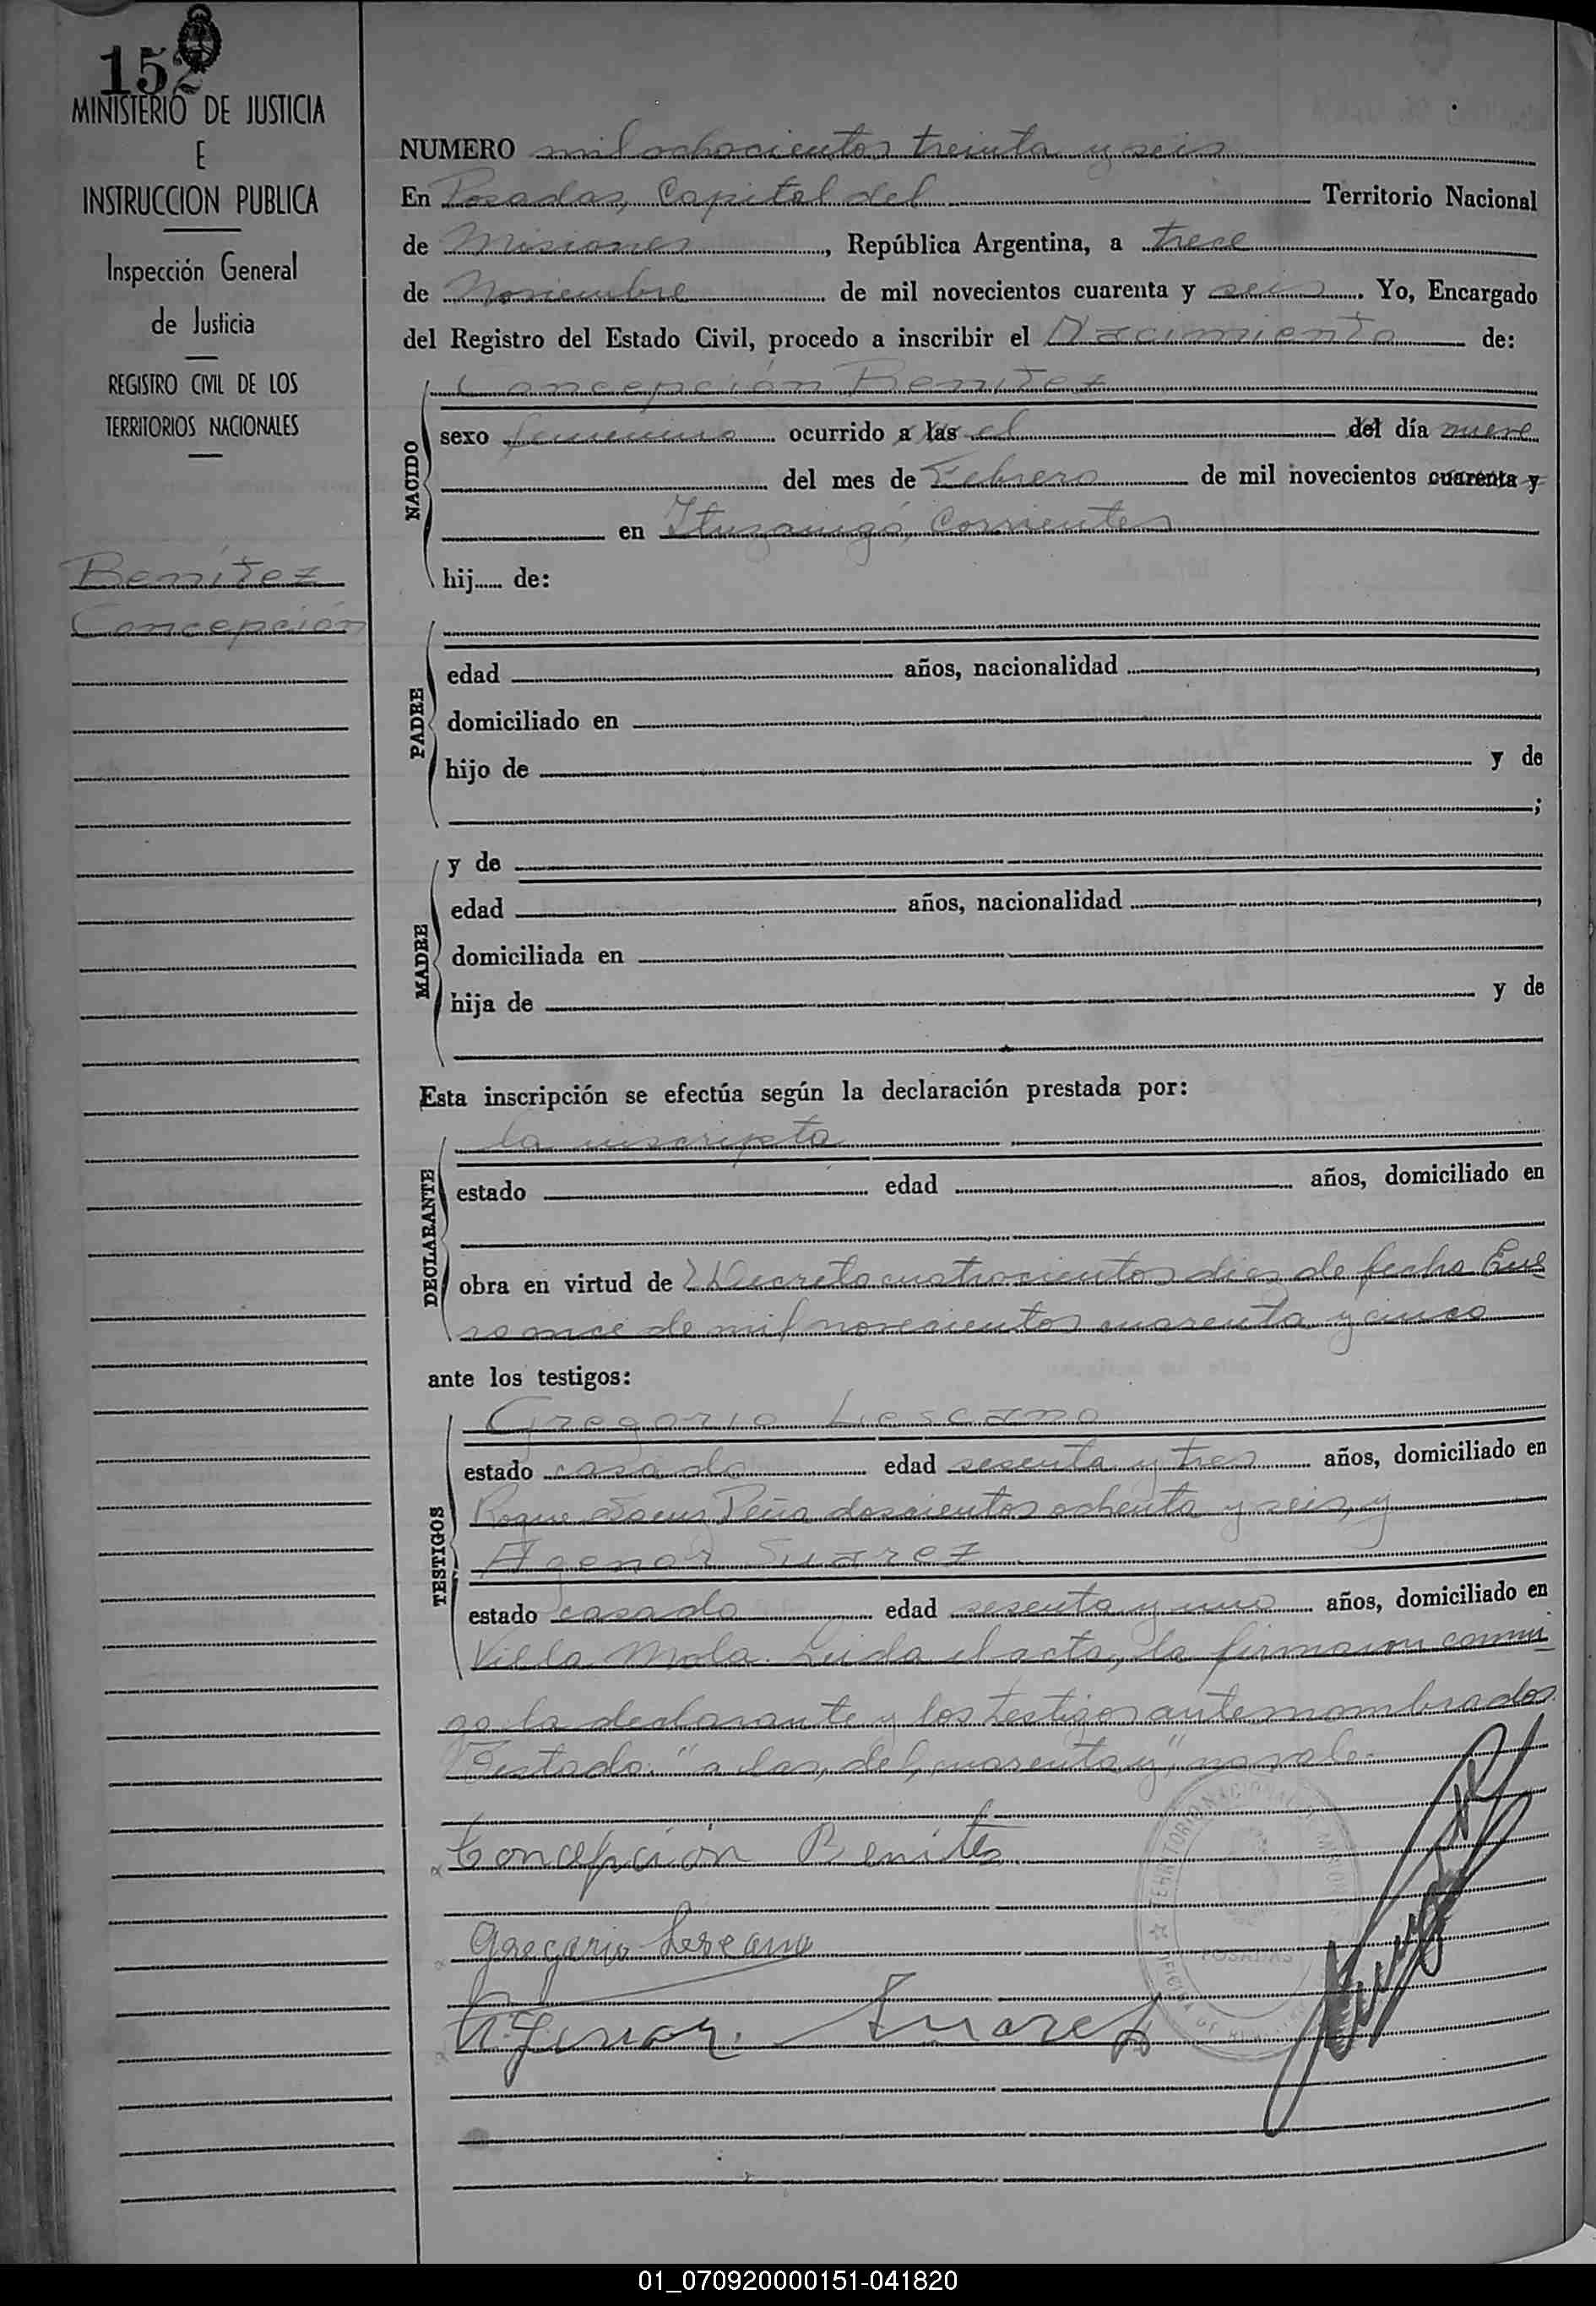 152
MINISTERIO DE JUSTICIA
E
INSTRUCCION PUBLICA
Inspección General
de Justicia
REGISTRO CIVIL DE LOS
TERRITORIOS NACIONALES
Benítez
Concepción
NUMERO mil ochocientos treinta y seis
En Posadas, Capital del Territorio Nacional
de Misiones, República Argentina, a trece
de Noviembre de mil novecientos cuarenta y seis. Yo, Encargado
del Registro del Estado Civil, procedo a inscribir el Nacimiento de:
NACIDO
Concepción Benítez
sexo femenino ocurrido a las el del día nueve
del mes de Febrero de mil novecientos cuarenta y
en Ituzaingó, Corrientes
hij...... de:
PADRE
edad años, nacionalidad ,
domiciliado en
hijo de y de
;
MADRE
y de
edad años, nacionalidad ,
domiciliada en
hija de y de
Esta inscripción se efectúa según la declaración prestada por:
DECLARANTE
la inscripta
estado edad años, domiciliado en
obra en virtud de Decreto cuatrocientos diez de fecha Ene
ro once de mil novecientos cuarenta y cinco
ante los testigos:
TESTIGOS
Gregorio Lescano
estado casado edad sesenta y tres años, domiciliado en
Roque Saenz Peña doscientos ochenta y seis, y
Agenor Suarez
estado casado edad sesenta y uno años, domiciliado en
Villa Mola. Leida el acta, la firmaron conmi
go la declarante y los testigos antenombrados.
Testado: "a las, del, cuarenta y", no vale.
Concepción Benites
Gregorio Lescano
Agenor Suarez
TERRITORIO NACIONAL DE MISIONES
POSADAS
01_070920000151-041820